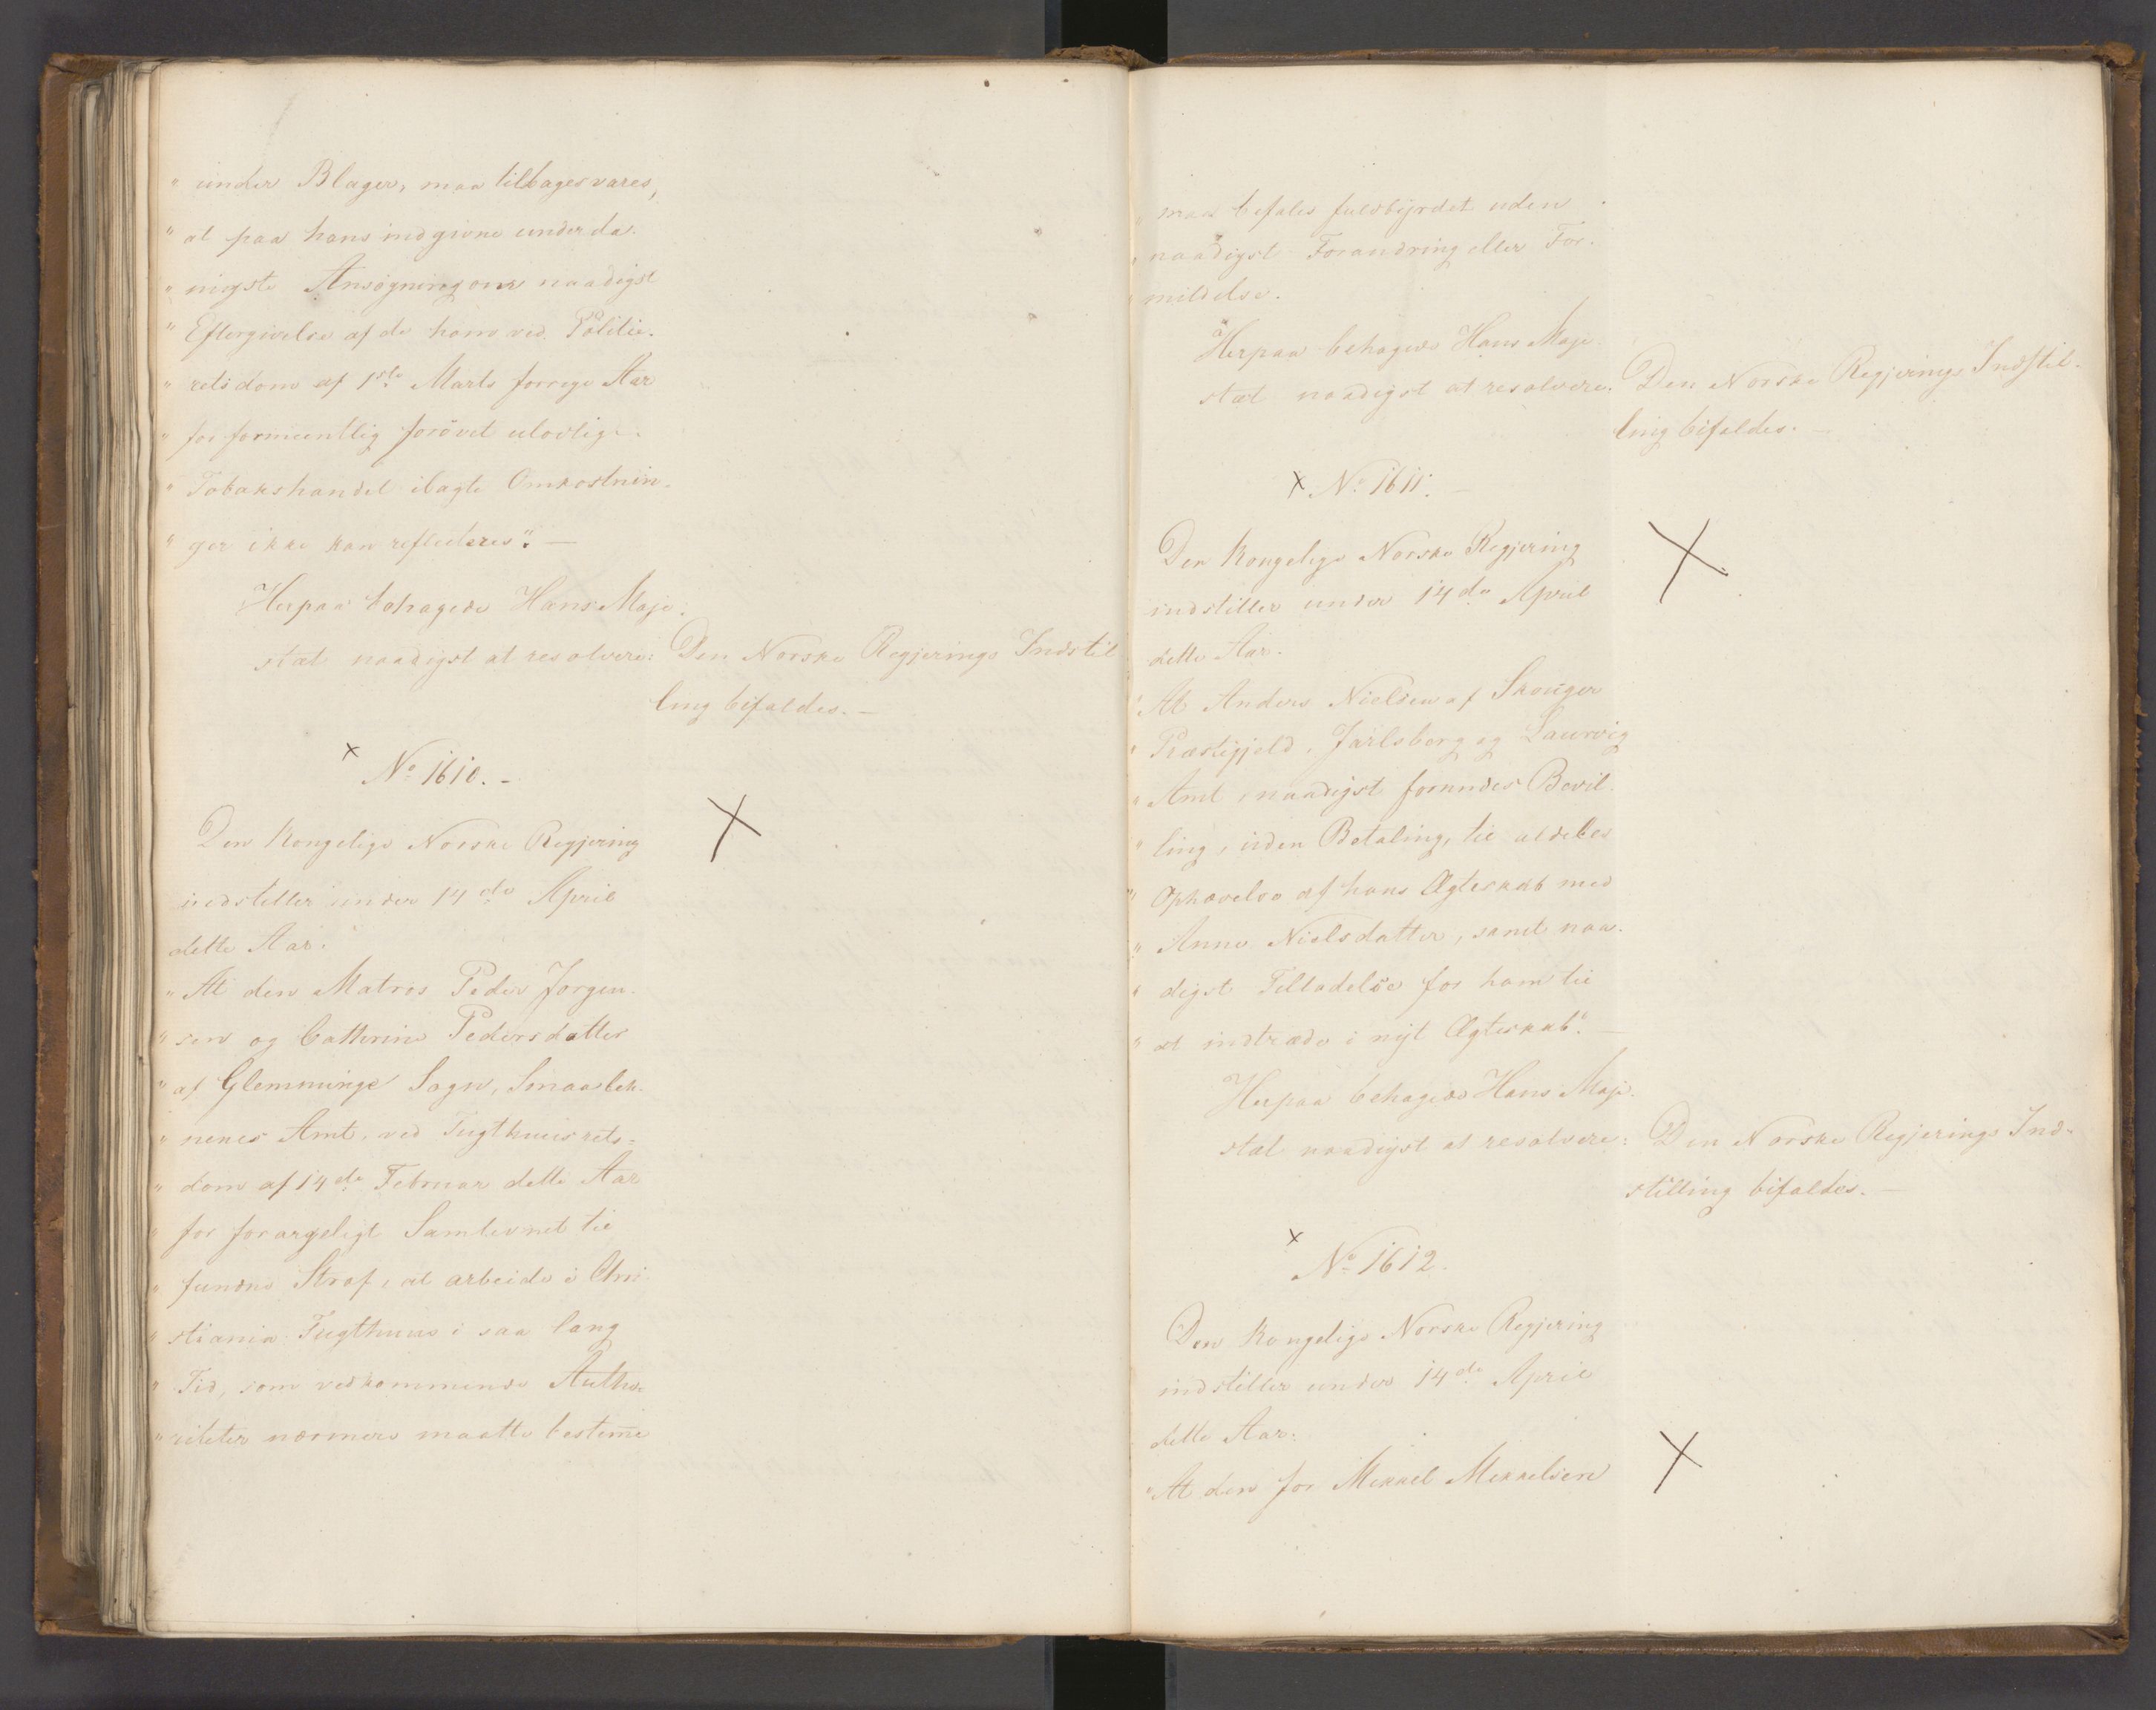 " under Blager, maa tilbagesvares,
" at paa hans indgivne underda-
" nigste Ansøgning om naadigst
" Eftergivelse af de ham ved Politie-
" retsdom af 1ste Marts forrige Aar
" for formeentlig forøvet ulovlig
" Tobakshandel ilagte Omkostnin-
" ger ikke kan reflecteres". —
Herpaa behagede Hans Maje-
stæt naadigst at resolvere: Den Norske Regjerings Indstil
ling bifaldes. —
x No 1610. -
Den Kongelige Norske Regjering
indstiller under 14de April
dette Aar:
" At den Matros Peder Jørgen-
" sen og Cathrine Pedersdatter
" af Glemminge Sogn, Smaaleh-
" nenes Amt, ved Tugthuusrets-
" dom af 14de Februar dette Aar
" for forargeligt Samlevnet til
" fundne Straf, at arbeide i Chri
" stiania Tugthuus i saa lang
" Tid, som vedkommende Autho-
" riteter nærmere maatte bestem̅e
" maa befales fuldbyrdet uden
" naadigst Forandring eller For-
" mildelse.
Herpaa behagede Hans Maje-
stæt naadigst at resolvere: Den Norske Regjerings Indstil-
ling bifaldes. —
x No 1611. —
Den Kongelige Norske Regjering
indstiller under 14de April
dette Aar:
" At Anders Nielsen af Skouger
" Præstegjeld, Jarlsberg og Laurvig
" Amt, naadigst forundes Bevil-
" ling, uden Betaling, til aldeles
" Ophævelse af hans Ægteskab med
" Anne Nielsdatter, samt naa-
" digst Tilladelse for ham til
" at indtræde i nyt Ægteskab". —
Herpaa behagede Hans Maje-
stæt naadigst at resolvere: Den Norske Regjerings Ind-
stilling bifaldes. —
x No 1612.
Den Kongelige Norske Regjering
indstiller under 14de April
dette Aar:
" At den for Mikkel Mikkelsen